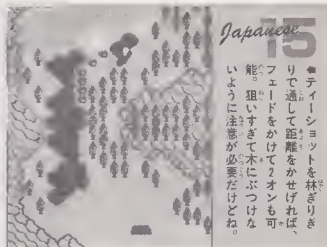 Japanese
15
⬅ティーショットを林ぎりぎ
りで通して距離をかせげれば、
フェードをかけて2オンも可
能。狙いすぎて木にぶつけな
いように注意が必要だけどね。